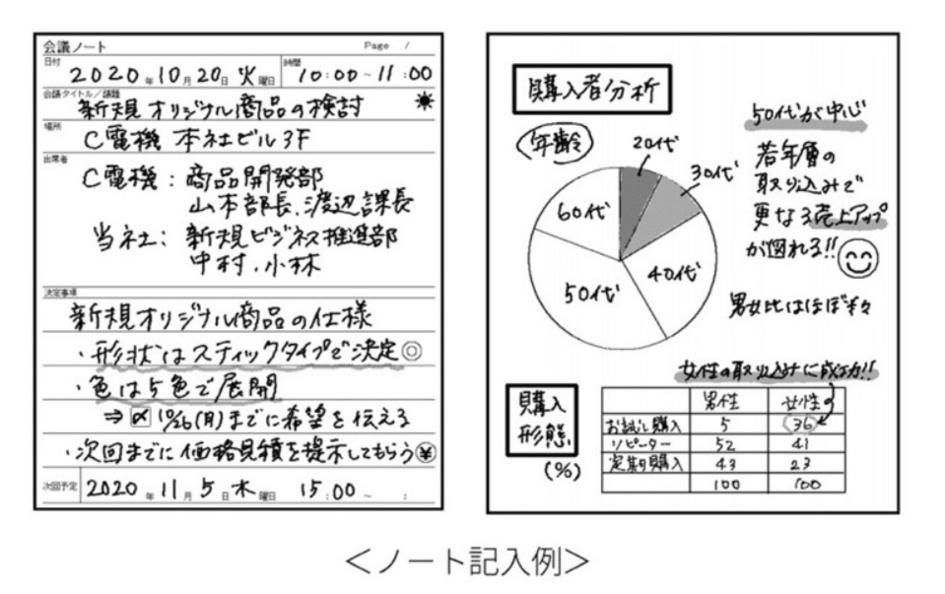 会議ノート Page /
日付 2020年10月20日 火曜日 時間 10:00~11:00
会議タイトル/議題
新規オリジナル商品の検討
場所
C電機 本社ビル3F
出席者
C電機:商品開発部
山本部長、渡辺課長
当社:新規ビジネス推進部
中村、小林
決定事項
新規オリジナル商品の仕様
・形状はスティックタイプで決定◎
・色は5色で展開
⇒〆10/26(月)までに希望を伝える
・次回までに価格見積を提示してもらう¥
次回予定 2020年11月5日 木曜日 15:00~ :
購入者分析
年齢
20代
30代
40代
50代
60代
50代が中心
若年層の
取り込みで
更なる売上アップ
が図れる!!
男女比はほぼ半々
女性の取り込みに成功!!
購入
形態
(%)
男性 女性
お試し購入 5 36
リピーター 52 41
定期購入 43 23
100 100
<ノート記入例>